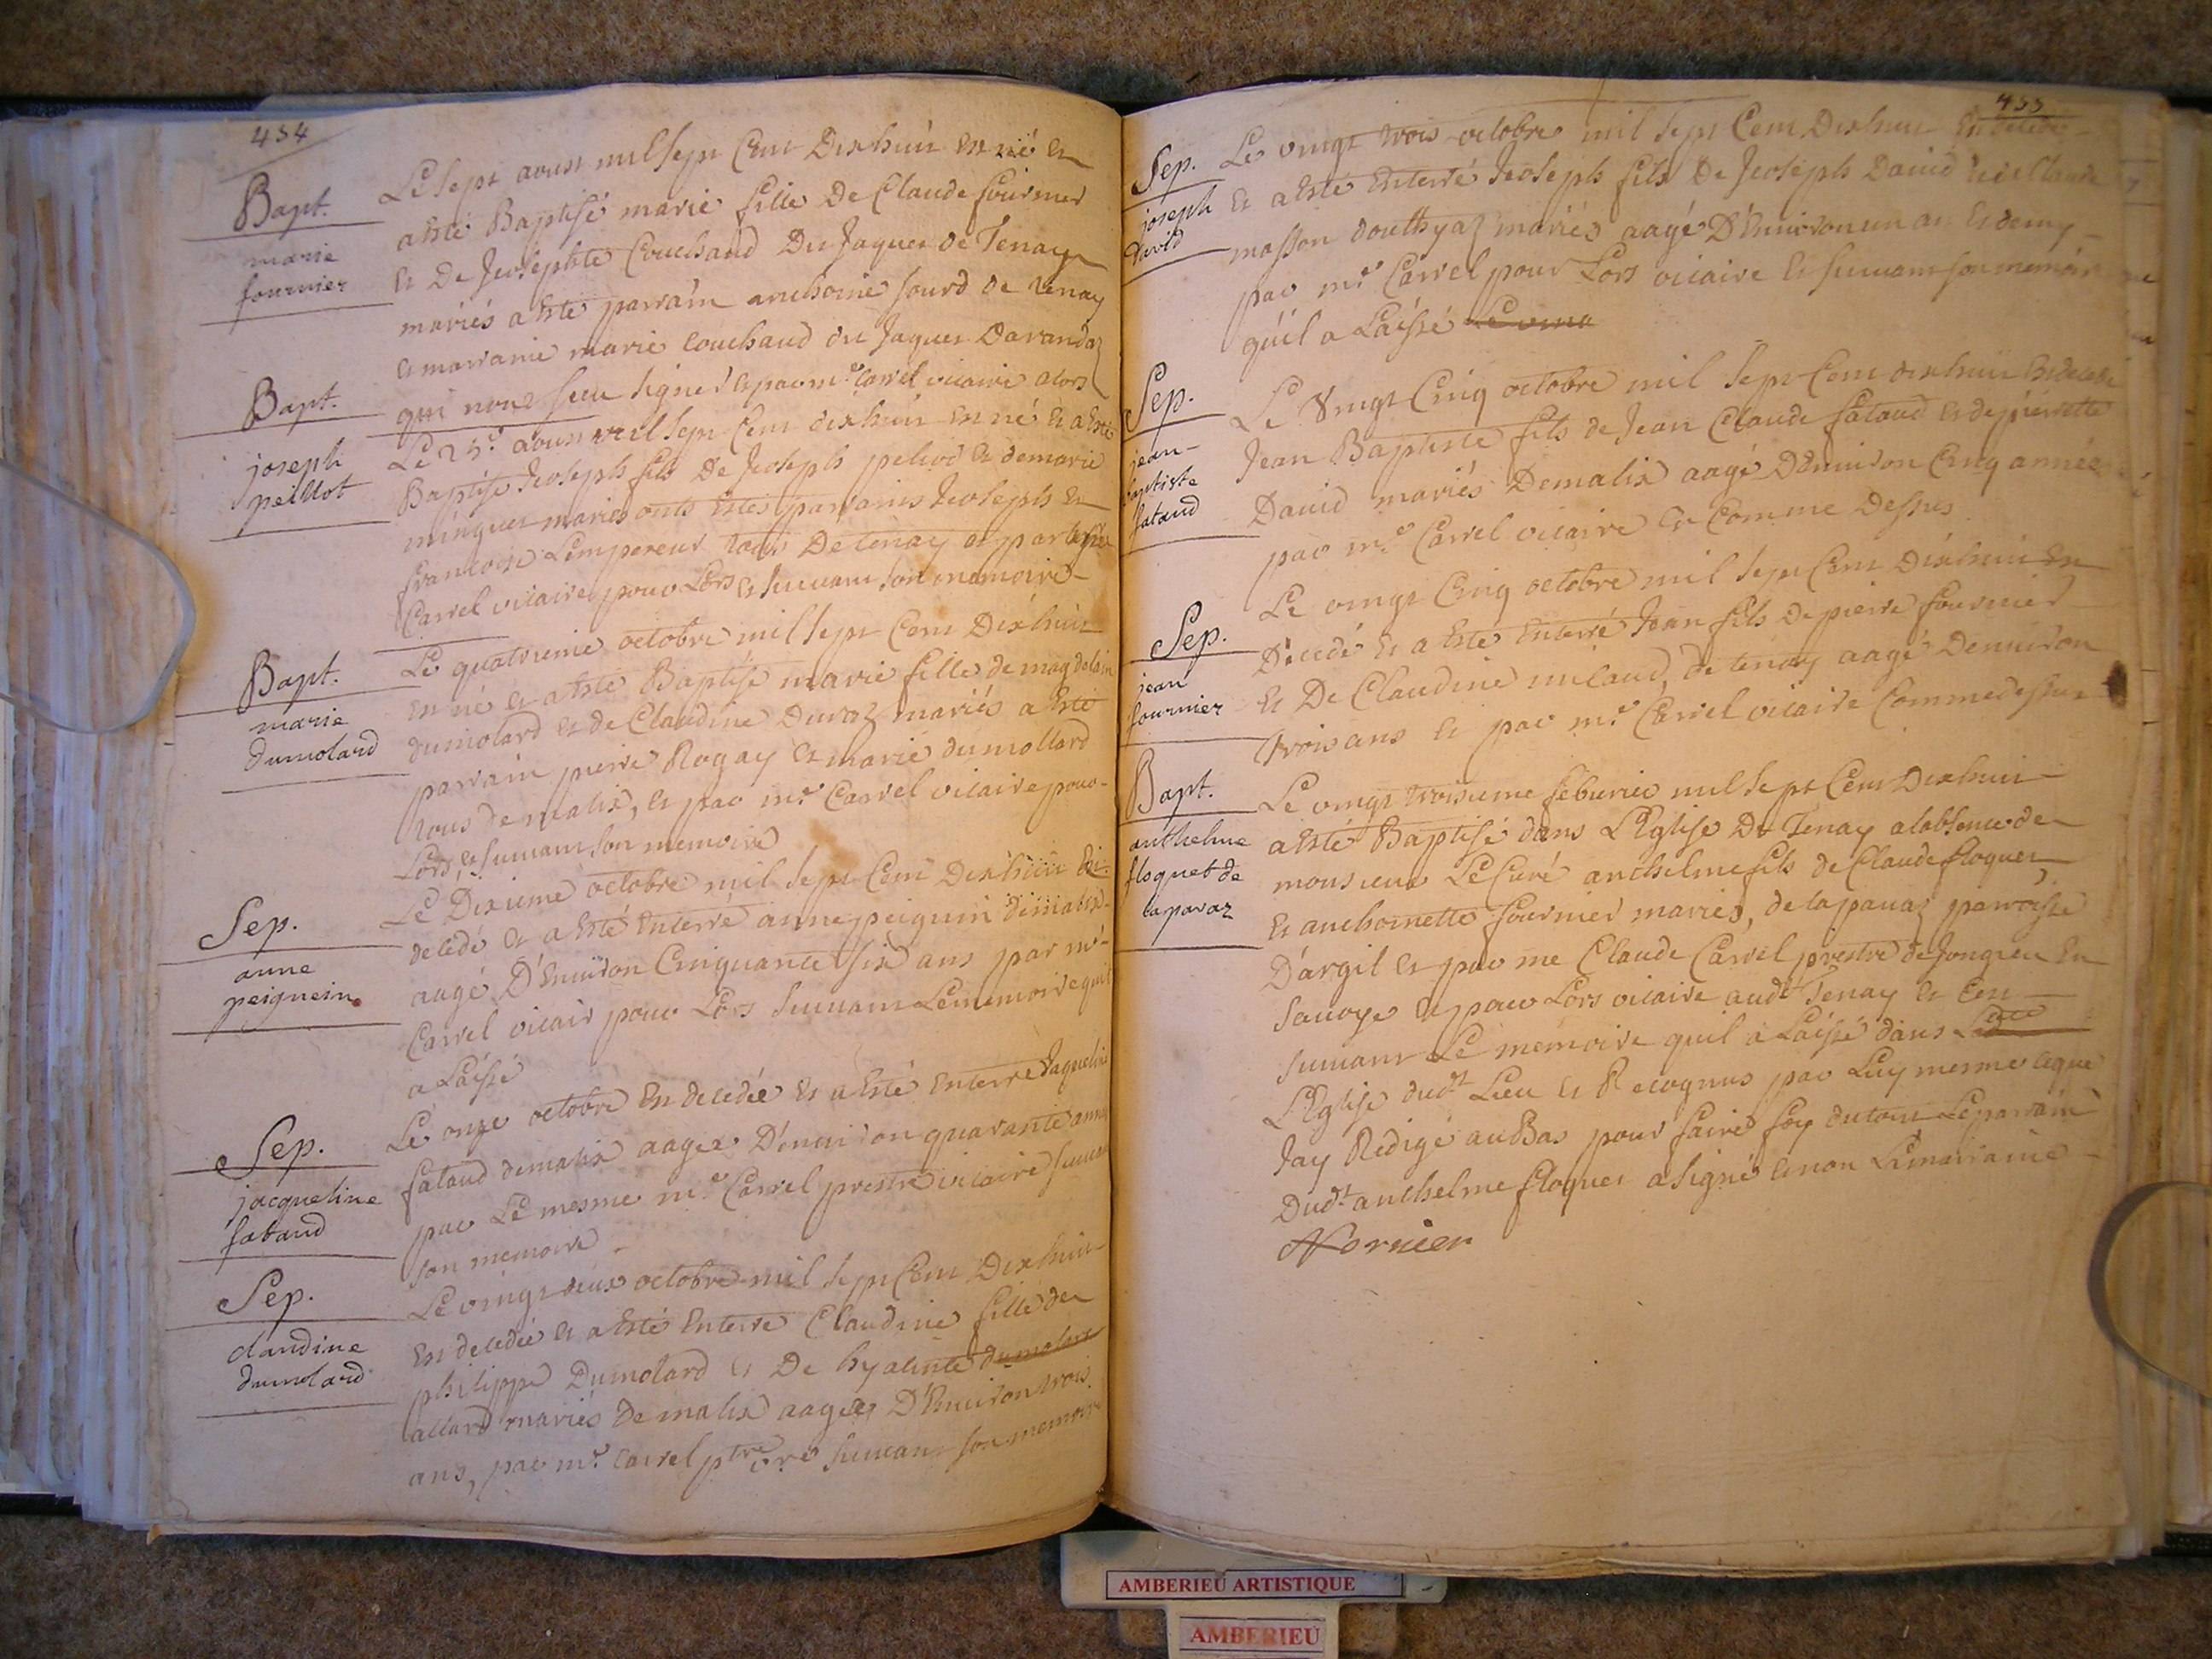 434
Bapt.
marie
fournier
Le sept aoust mil sept Cent Dixhuit Est né Et
a Esté Baptisé marie fille De Claude fournier
Et De Jeosephte Couchaud Du Jaques de Tenay
mariés a Esté parrain anthoine sourd de Tenay
Et marraine marie Couchaud du Jaques Davandaz
qui nont sceu signer Et par mr. Carrel vicaire alors
Bapt.
joseph
peillot
Le 25e. aoust mil sept Cent dixhuit Est né Et a Esté
Baptise Jeoseph fils De Jeoseph peliod Et de marie
minguet mariés onts Estés parrains Jeoseph Et
francoise Lempereur tous De tenay et par
Carrel vicaire pour Lors Et suiuant son memoire
Bapt.
marie
dumolard
Le quatrieme octobre mil sept Cent Dixhuit
Est né Et a Esté Baptisé marie fille de magdelain
dumolard Et de Claudine Duraz mariés a Esté
parrain pierre Rogay Et marie dumollard
tous de malix, Et par mr. Carrel vicaire pour
Lors, Et suiuant son memoire
Sep.
anne
peignein
Le Dixieme octobre mil sept Cent Dixhuit Est
decedé Et a Esté Enterré anne peignin de malix
aagé D'Enuiron Cinquante six ans par mr
Carrel vicair pour Lors suiuant Le memoire quil
a Laissé
Sep.
jacqueline
fataud
Le onze octobre Est decedée Et a Esté Enterré Jaqueline
fataud de malix aagée D'enuiron quarante année
par Le mesme mr. Carrel prestre vicaire suiuant
son memoire
Sep.
claudine
dumolard
Le vingt deux octobre mil sept Cent Dixhuit
Est decedée Et a Esté Enterré Claudine fille de
philippe Dumolard Et De hyacinte dumolard
allard mariés de malix aagée D'Enuiron trois
ans, par mr. Carrel ptre vre suiuant son memoire
433
Sep.
joseph
david
Le vingt trois octobre mil sept Cent Dixhuit Est decedé
Et a Esté Enterré Jeoseph fils De Jeoseph Dauid Et de Claude
masson douthyaz mariés aagé D'Enuiron un an Et demy
par mr. Carrel pour Lors vicaire Et suiuant son memoire
qu'il a Laissé
Sep.
jean-
baptiste
fataud
Le vingt Cinq octobre mil sept Cent dixhuit Est decedé
Jean Baptiste fils de Jean Claude fataud Et de pierrette
Dauid mariés De malix aagé D'Enuiron Cinq années
par mr. Carrel vicaire Et Comme Dessus
Sep.
jean
fournier
Le vingt Cinq octobre mil sept Cent Dixhuit Est
Decedé Et a Esté Enterré Jean fils De pierre fournier
Et De Claudine milaud, de tenay aagé Denuiron
trois ans Et par mr. Carrel vicaire Comme dessus
Bapt.
anthelme
floquet de
laparaz
Le vingt troisieme feburier mil sept Cent Dixhuit
a Esté Baptisé dans L'Eglise De Tenay a labsence de
monsieur Le Curé anthelme fils de Claude floquet
Et anthoinette fournier mariés, de lapauaz parroisse
D'argil Et par me Claude Carrel prestre de Jongieu En
Sauoye Et pour Lors vicaire audt Tenay Et Ceu
suiuant Le memoire quil a Laissé dans
L'Eglise dudt Lieu Et Recognus par Luy mesme Leque
Jay Redigé au Bas pour faire foy du tout Le parrain
Dudt. anthelme floquet a signé Et non La marraine
Nornier
AMBERIEU ARTISTIQUE
AMBERIEU